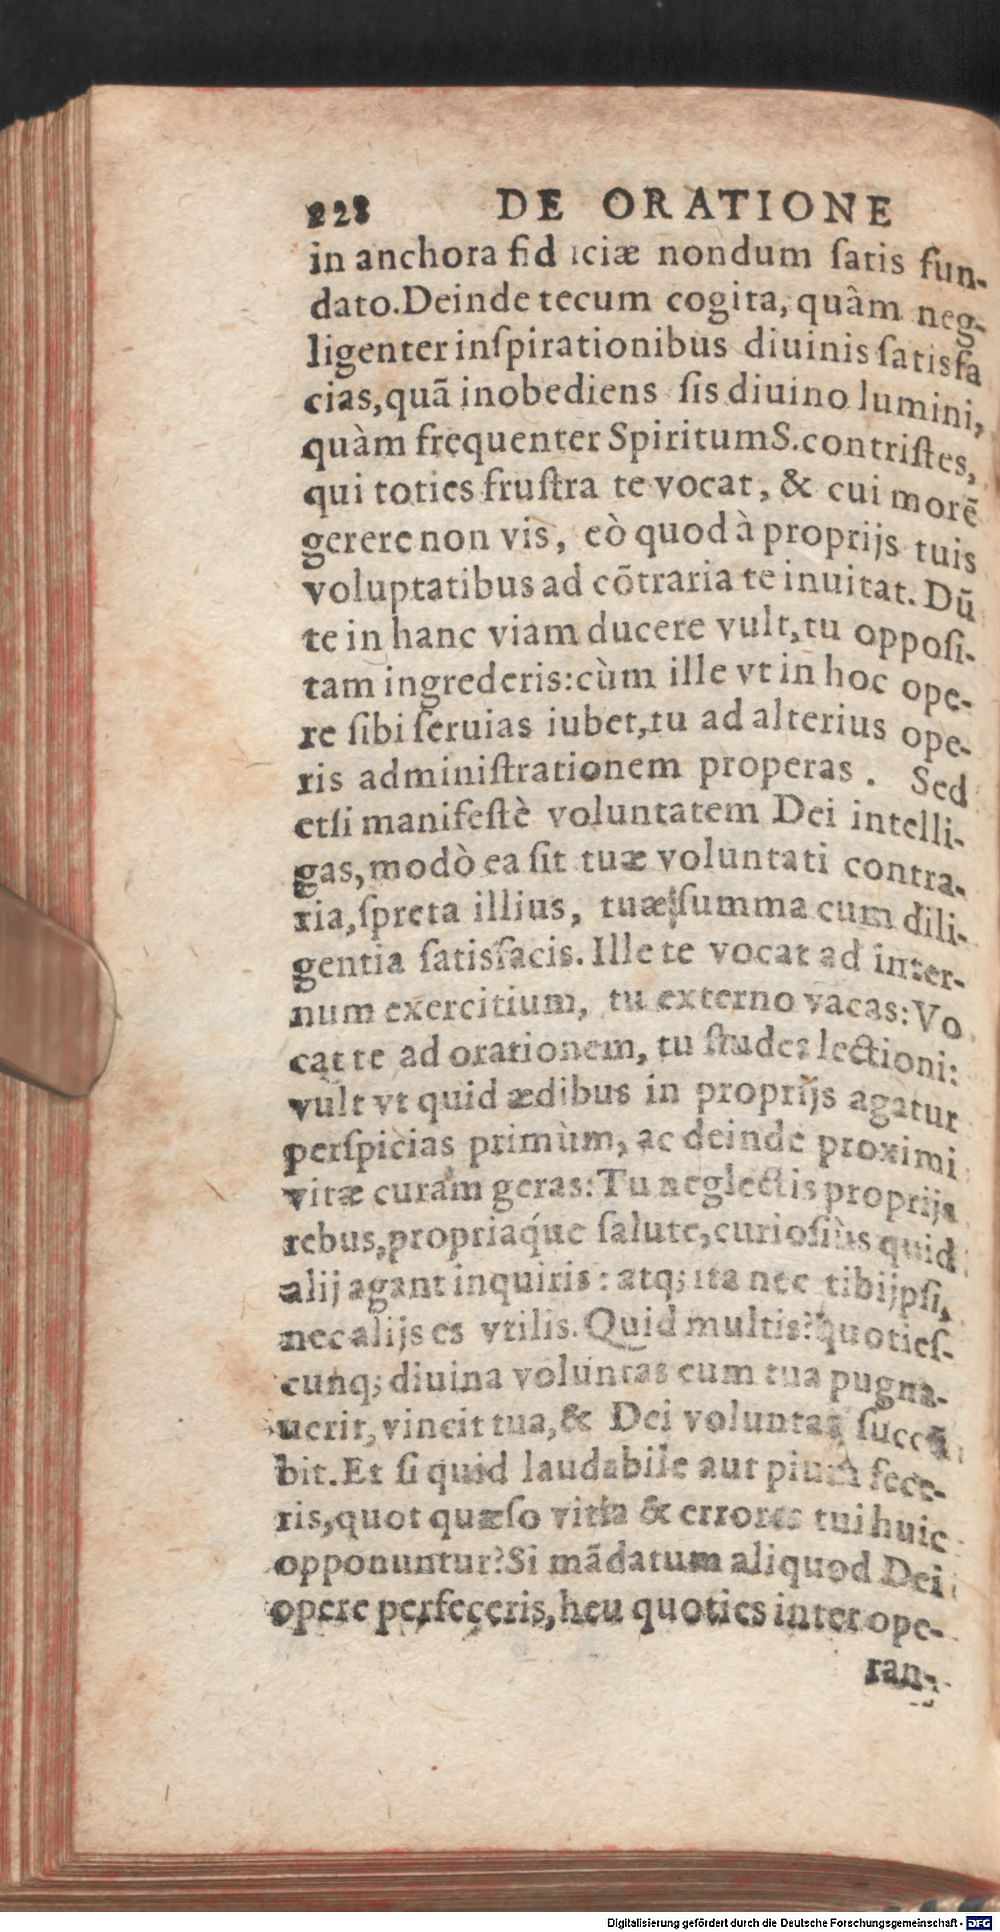 228 DE ORATIONE
in anchora fid iciæ nondum ſatis fun-
dato. Deinde tecum cogita, quâm neg-
ligenter inſpirationibus diuinis ſatisfa
cias, quã inobediens ſis diuino lumini,
quàm frequenter Spiritum S. contriſtes,
qui toties fruſtra te vocat, & cui morẽ
gerere non vis, eò quod à proprijs tuis
voluptatibus ad cõtraria te inuitat. Dũ
te in hanc viam ducere vult, tu oppoſi-
tam ingrederis: cùm ille vt in hoc ope-
re ſibi ſeruias iubet, tu ad alterius ope-
ris adminiſtrationem properas. Sed
etſi manifeſtè voluntatem Dei intelli-
gas, modò ea ſit tuæ voluntati contra-
ria, ſpreta illius, tuæ ſumma cum dili-
gentia ſatisfacis. Ille te vocat ad inter-
num exercitium, tu externo vacas: Vo
cat te ad orationem, tu ſtudes lectioni:
vult vt quid ædibus in proprijs agatur
perſpicias primùm, ac deinde proximi
vitæ curam geras: Tu neglectis proprijs
rebus, propriaq́ue ſalute, curioſiùs quid
alij agant inquiris: atq; ita nec tibi ipſi,
nec alijs es vtilis. Quid multis? quotieſ-
cunq; diuina voluntas cum tua pugna-
uerit, vincit tua, & Dei voluntas ſuccũ
bit. Et ſi quid laudabile aut pium fece-
ris, quot quæſo vitia & errores tui huic
opponuntur? Si mãdatum aliquod Dei
opere perfeceris, heu quoties inter ope-
ran-
Digitalisierung gefördert durch die Deutsche Forschungsgemeinschaft - DFG